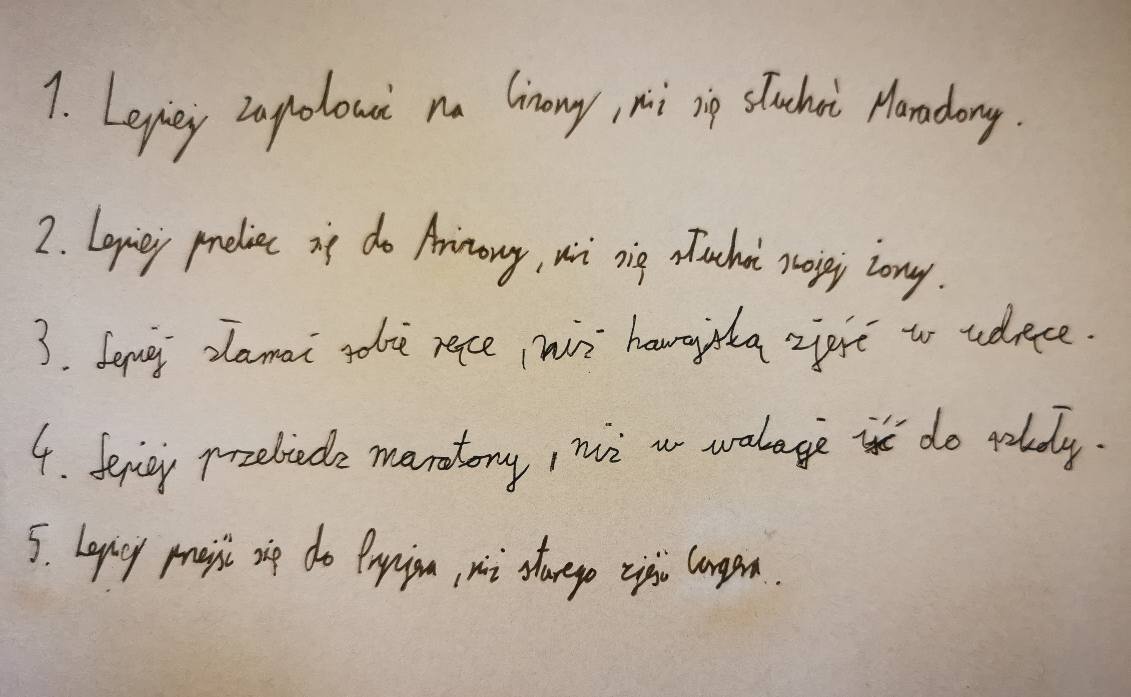 1. Lepiej zapolować na bizony, niż się słuchać Maradony.
2. Lepiej przebiec się do Arizony, niż się słuchać swojej żony.
3. Lepiej złamać sobie ręce, niż hawajską zjeść w udręce.
4. Lepiej przebiedz maratony, niż w wakacje iść do szkoły.
5. Lepiej przejść się do fryzjera, niż starego zjeść burgera.